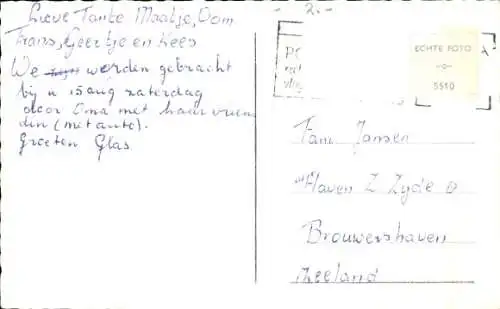 Lieve Tante Maatje, Oom
Frans, Geertje en Kees
We zijn worden gebracht
bij u 15 aug zaterdag
door Oma met haar vrien
din (met auto).
Groeten Glas
2.-
PO
ECHTE FOTO
5510
Fam. Jansen
Haven Z Zyde
Brouwershaven
Zeeland